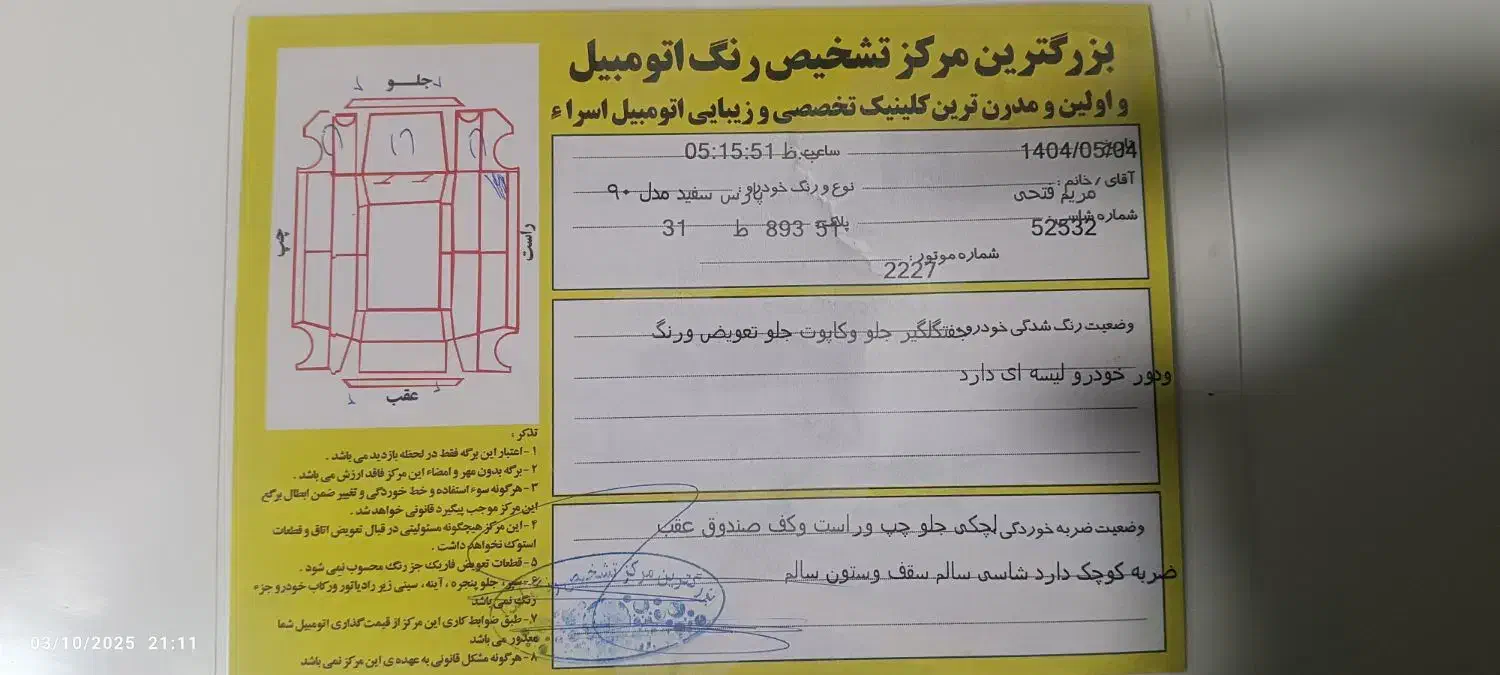 بزرگترین مرکز تشخیص رنگ اتومبیل
و اولین و مدرن ترین کلینیک تخصصی و زیبایی اتومبیل اسراء
تاریخ 1404/05/04 ساعت 05:15:51 ب.ظ
آقای / خانم : مریم فتحی نوع و رنگ خودرو : پارس سفید مدل ۹۰
شماره شاسی 52532 پلاک 51 893 ط 31
شماره موتور : 2227
وضعیت رنگ شدگی خودرو جفتگلگیر جلو وکاپوت جلو تعویض ورنگ
ودور خودرو لیسه ای دارد
وضعیت ضربه خوردگی لچکی جلو چپ وراست وکف صندوق عقب
ضربه کوچک دارد شاسی سالم سقف وستون سالم
جلو
چپ
راست
عقب
تذکر :
۱- اعتبار این برگه فقط در لحظه بازدید می باشد .
۲- برگه بدون مهر و امضاء این مرکز فاقد ارزش می باشد .
۳- هرگونه سوء استفاده و خط خوردگی و تغییر ضمن ابطال برگه
این مرکز موجب پیگیرد قانونی خواهد شد .
۴- این مرکز هیچگونه مسئولیتی در قبال تعویض اتاق و قطعات
استوک نخواهد داشت .
۵- قطعات تعویض فابریک جز رنگ محسوب نمی شود .
۶- سپر، جلو پنجره ، آینه ، سینی زیر رادیاتور ورکاب خودرو جزء
رنگ نمی باشد
۷- طبق ضوابط کاری این مرکز از قیمت گذاری اتومبیل شما
معذور می باشد
۸- هرگونه مشکل قانونی به عهده ی این مرکز نمی باشد
بزرگترین مرکز تشخیص
03/10/2025 21:11